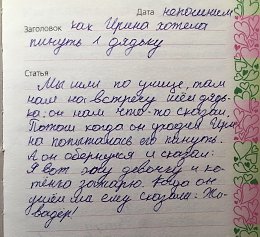 Дата непомним
Заголовок как Ирина хотела
пинуть 1 дядьку
Статья
Мы шли по улице, там
нам на встречу шёл дядь-
ка, он нам что-то сказал.
Потом когда он уходил Ири-
на попыталась его пинуть.
А он обернулся и сказал:
Я вот эту девочку и ко-
тенка зажарю. Когда он
ушёл на след сказала: Жи-
вадёр!